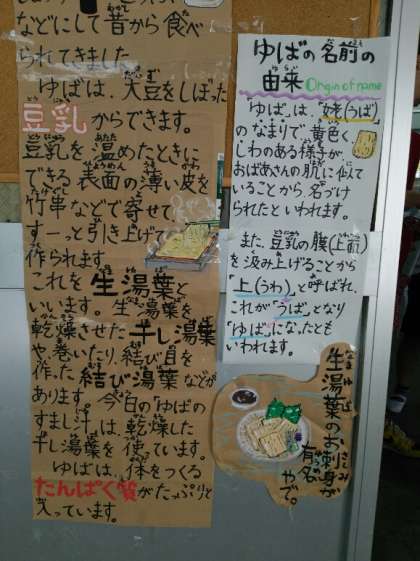 などにして昔から食べ
られてきました。
ゆばは、大豆をしぼった
豆乳からできます。
豆乳を温めたときに
できる表面の薄い皮を
竹串などで寄せて
すーっと引き上げて
作られます。
これを生湯葉と
いいます。生湯葉を
乾燥させた干し湯葉
や、巻いたり、結び目を
作った結び湯葉などが
あります。今日の「ゆばの
すまし汁」は、乾燥した
干し湯葉を使っています。
ゆばは、体をつくる
たんぱく質がたっぷりと
入っています。
ゆばの名前の
由来 Origin of name
「ゆば」は、「姥(うば)」
のなまりで、黄色く、
しわのある様子が
おばあさんの肌に似て
いることから、名づけ
られたといわれます。
また、豆乳の膜(上前)
を汲み上げることから
「上(うわ)」と呼ばれ、
これが「うば」となり
「ゆば」になったとも
いわれます。
生湯葉のお刺身が
有名やで。